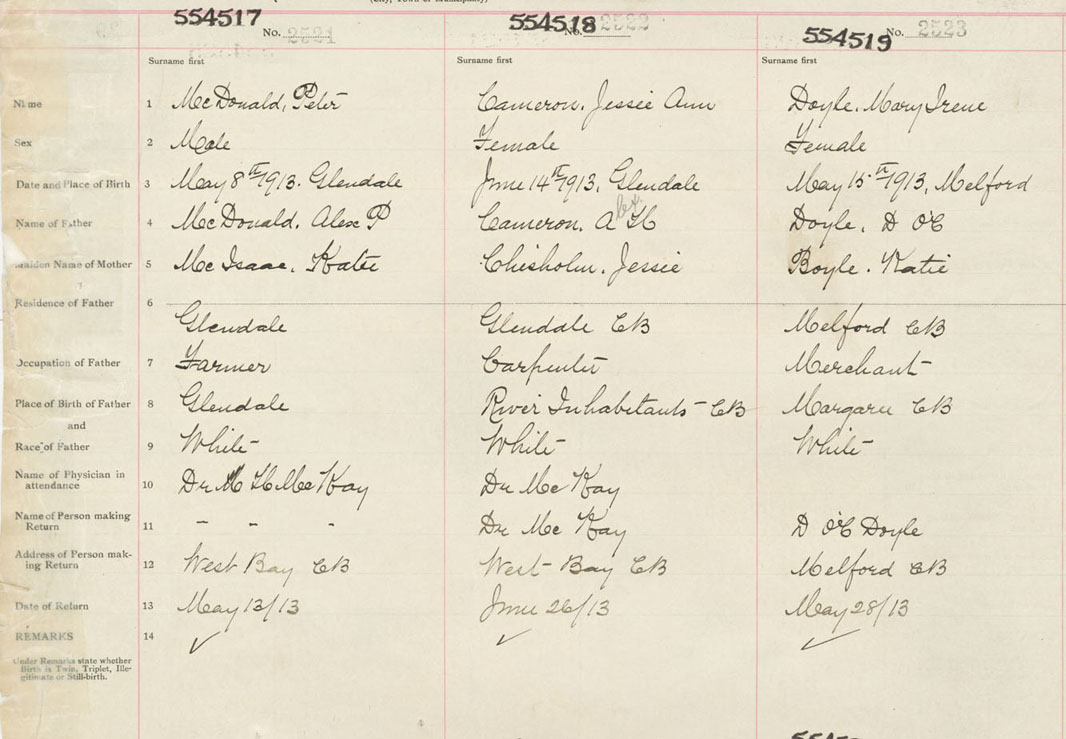 (City, Town or Municipality)
554517 554518 554519
No. 2521 No. 2522 No. 2523
Surname first Surname first Surname first
Name 1 McDonald, Peter Cameron, Jessie Ann Doyle, Mary Irene
Sex 2 Male Female Female
Date and Place of Birth 3 May 8th 1913. Glendale June 14th 1913, Glendale May 15th 1913, Melford
Name of Father 4 McDonald, Alex P Cameron, A lex. H Doyle, D O'C
Maiden Name of Mother 5 McIsaac, Katie Chisholm, Jessie Boyle, Katie
Residence of Father 6 Glendale Glendale CB Melford CB
Occupation of Father 7 Farmer Carpenter Merchant
Place of Birth of Father 8 Glendale River Inhabitants CB Margaree CB
and
Race of Father 9 White White White
Name of Physician in
attendance 10 Dr H McKay Dr McKay
Name of Person making
Return 11 " " " Dr McKay D O'C Doyle
Address of Person mak-
ing Return 12 West Bay CB West Bay CB Melford CB
Date of Return 13 May 13/13 June 26/13 May 28/13
REMARKS 14 ✓ ✓ ✓
Under Remarks state whether
Birth is Twin, Triplet, Ille-
gitimate or Still-birth.